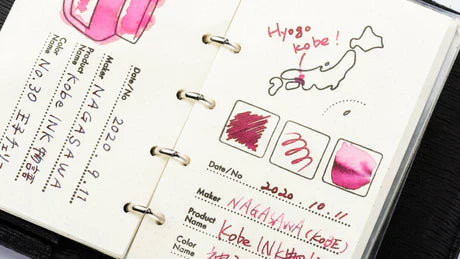 Date/No 2020 9.11
Maker NAGASAWA
Product Name Kobe INK物語
Color Name No30 王子チェリ
Hyogo
Kobe!
Date/No 2020.10.11
Maker NAGASAWA (KOBE)
Product Name Kobe INK物
Color Name